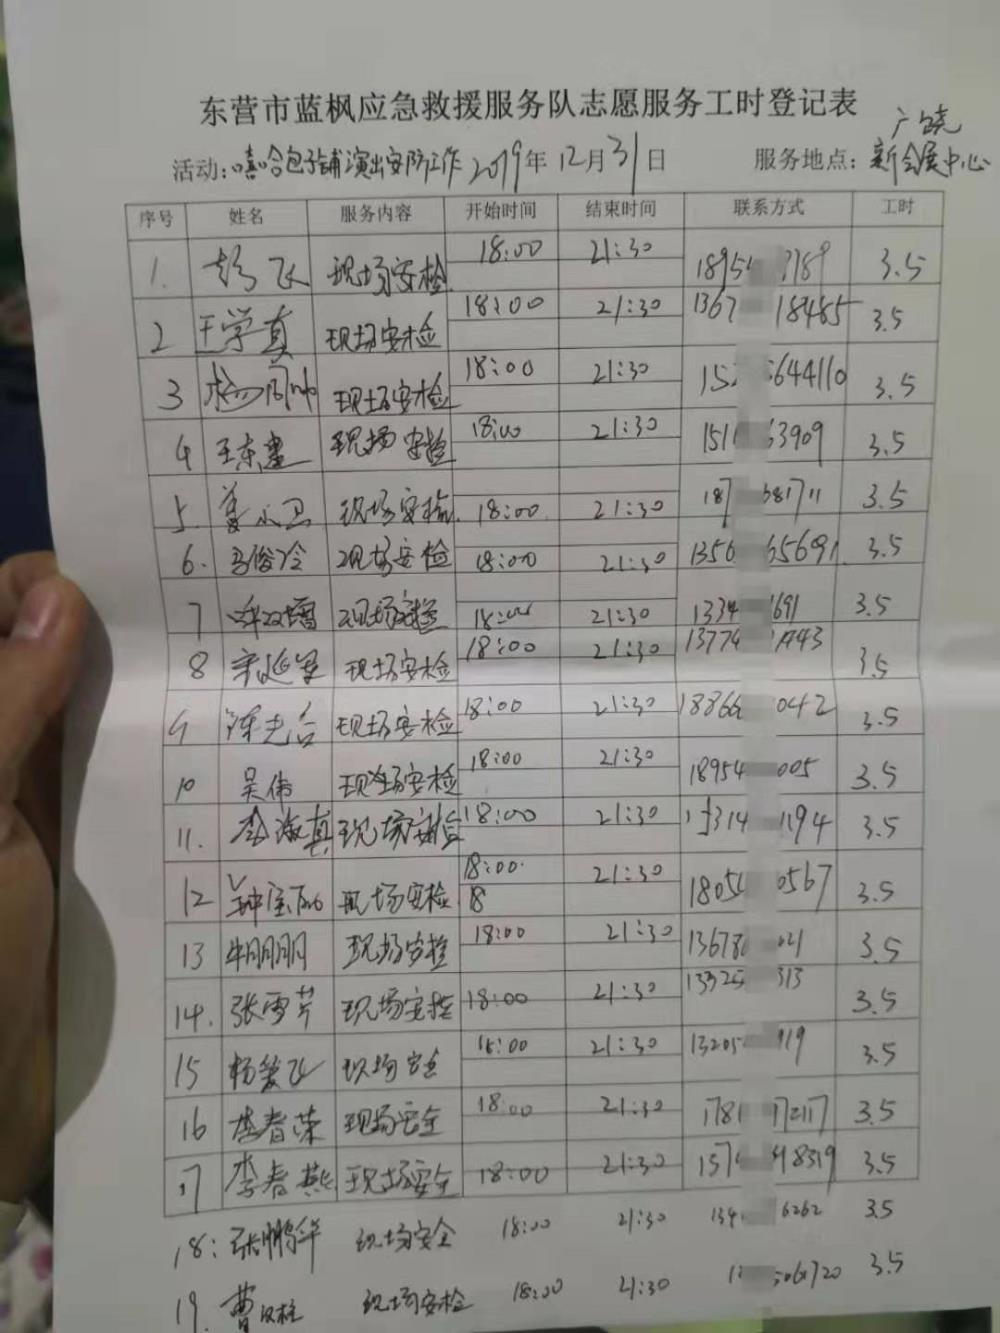 东营市蓝枫应急救援服务队志愿服务工时登记表
活动:嘻哈包子铺演出安防工作 2019年12月31日 服务地点:广饶新会展中心
序号 姓名 服务内容 开始时间 结束时间 联系方式 工时
1. 飞 现场安检 18:00 21:30 18954 3789 3.5
2 王学真 现场安检 18:00 21:30 1367 18485 3.5
3 现场安检 18:00 21:30 15 5644110 3.5
4 王东建 现场安检 18:00 21:30 151 63909 3.5
5. 姜小卫 现场安检 18:00 21:30 187 681711 3.5
6. 马俊冷 现场安检 18:00 21:30 1356 65691 3.5
7 现场安检 18:00 21:30 1334 691 3.5
8 宋延军 现场安检 18:00 21:30 13774 443 3.5
9 陈光台 现场安检 18:00 21:30 1886 0042 3.5
10 吴伟 现场安检 18:00 21:30 18954 005 3.5
11. 李海真 现场安检 18:00 21:30 1314 1194 3.5
12 现场安检 18:00 18 21:30 1805 0567 3.5
13 牛朋朋 现场安检 18:00 21:30 13678 021 3.5
14. 张雪芹 现场安检 18:00 21:30 13325 313 3.5
15 杨爱飞 现场安全 18:00 21:30 13205 919 3.5
16 李春荣 现场安全 18:00 21:30 178 172117 3.5
17 李春燕 现场安全 18:00 21:30 157 48319 3.5
18: 张鹏华 现场安全 18:00 21:30 134 6262 3.5
19. 曹汉柱 现场安检 18:00 21:30 13 5061720 3.5